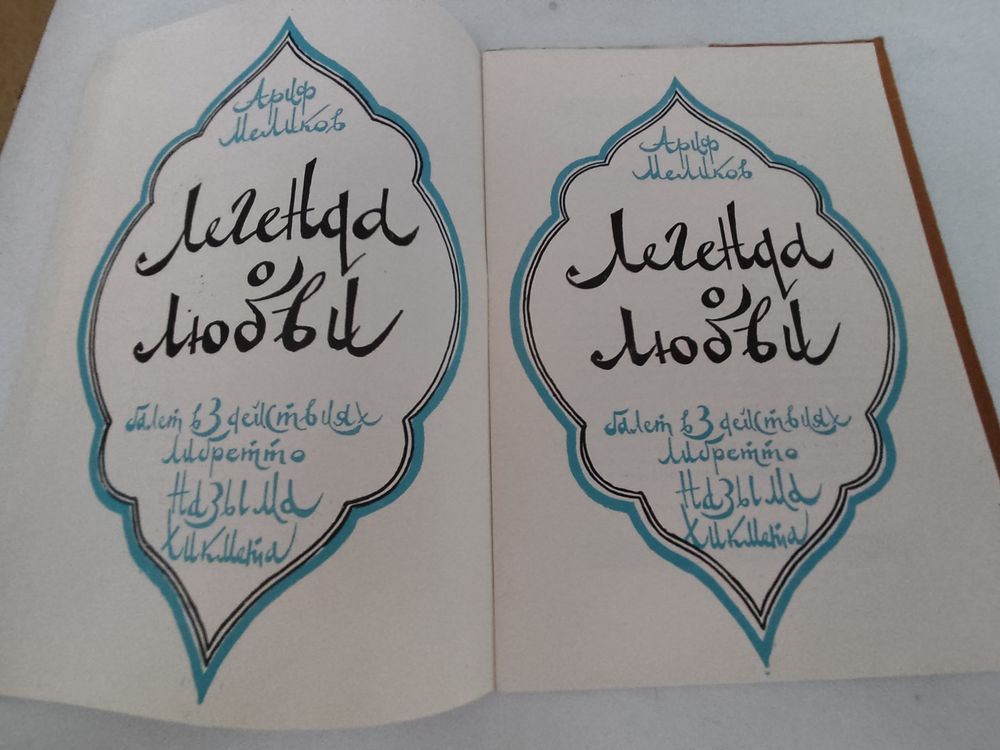 Ариф
Меликов
Легенда
о
любви
балет в 3 действиях
либретто
Назыма
Хикмета
Ариф
Меликов
Легенда
о
любви
балет в 3 действиях
либретто
Назыма
Хикмета